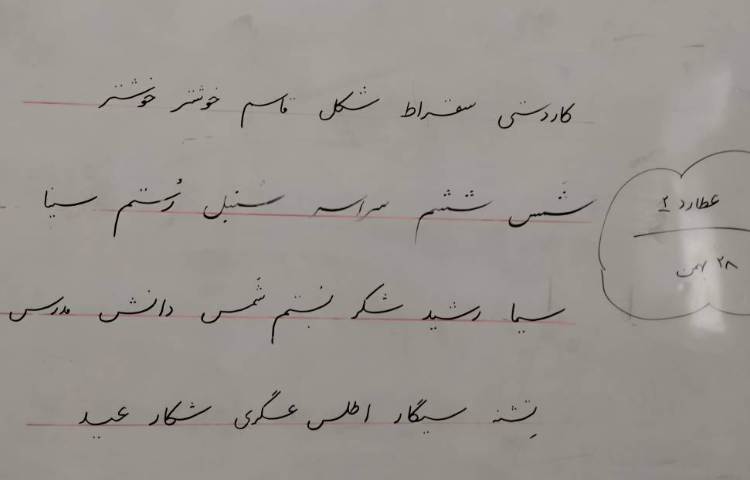 کاردستی سقراط شکل قاسم خوشتر خوشتر
شَمس ششم سراسر سُنبل رُستم سینا
سیما رشید شکر نبستم شَمس دانش مدرس
تِشنه سیگار اطلس عسگری شکار عید
عطارد ۲
۲۸ بهمن